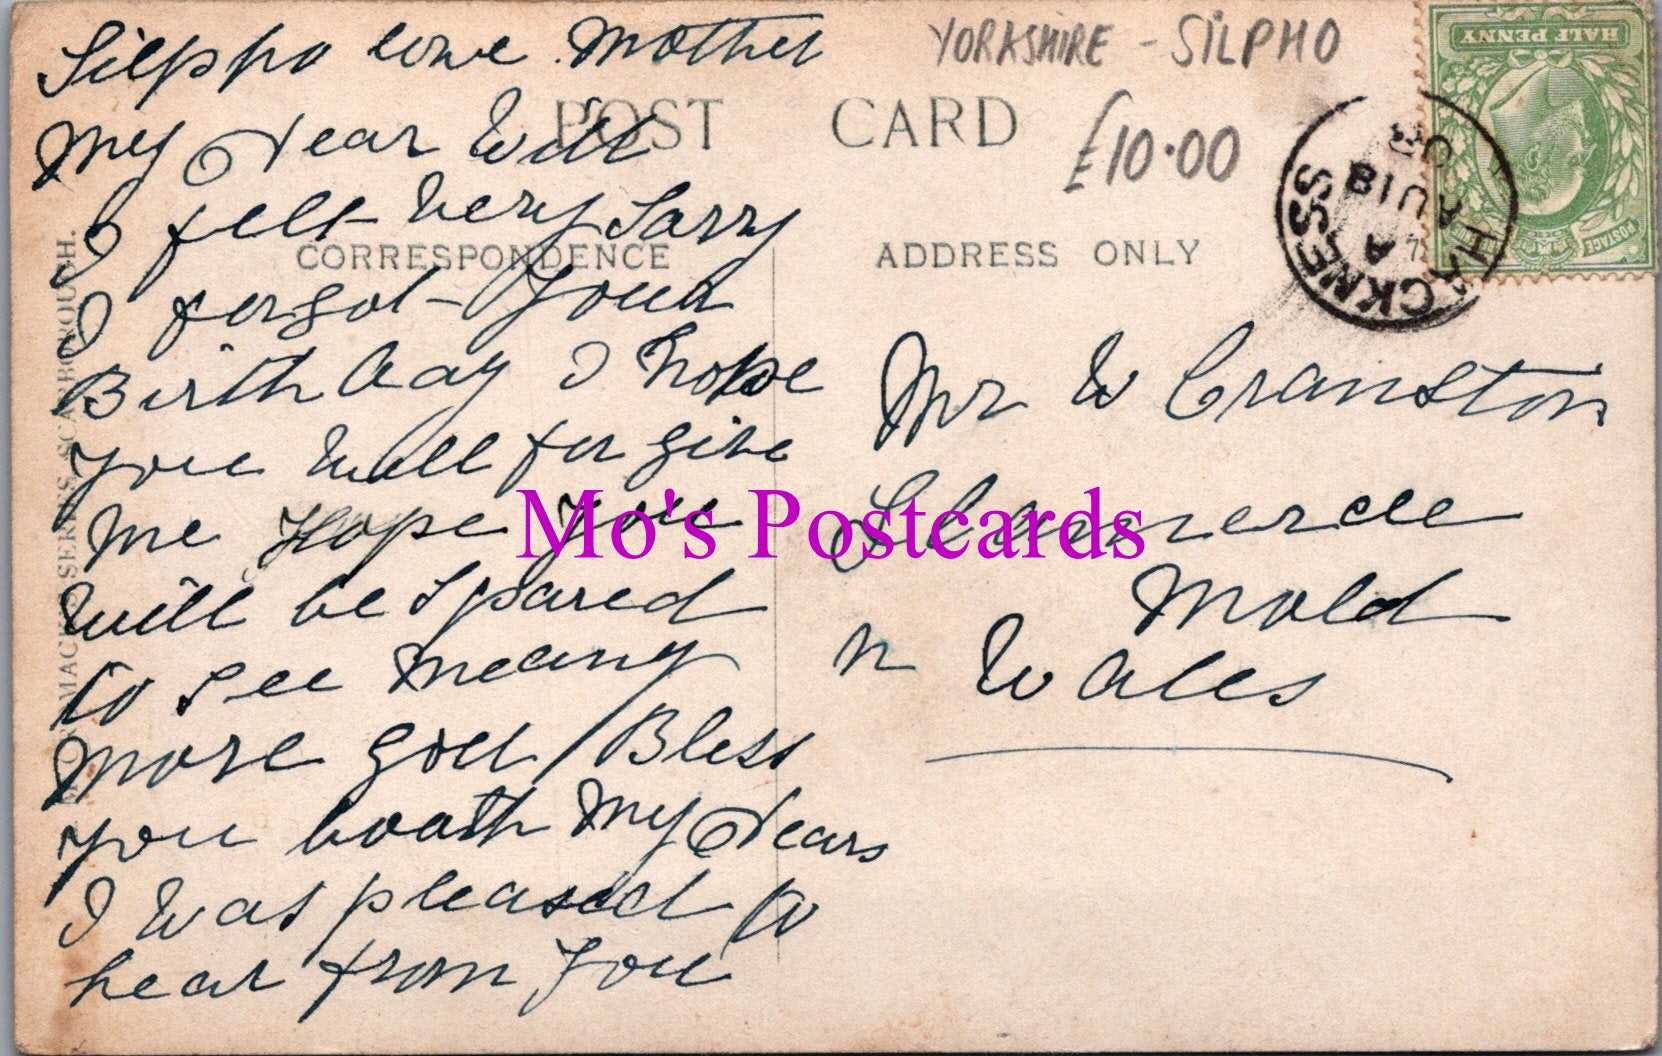 Silpho love Mother
My Dear Will
I felt very Sorry
I forgot Your
Birthday I hope
you will forgive
me Hope You
will be Spared
to See meany
more god Bless
you boath My Dears
I was pleased to
hear from You
YORKSHIRE - SILPHO
£10.00
POST CARD
CORRESPONDENCE
ADDRESS ONLY
Mr W Cranston
Mold
N Wales
HACKNESS
A
AU 18
08
HALF PENNY
POSTAGE
SERIES, SCARBOROUGH.
Mo's Postcards